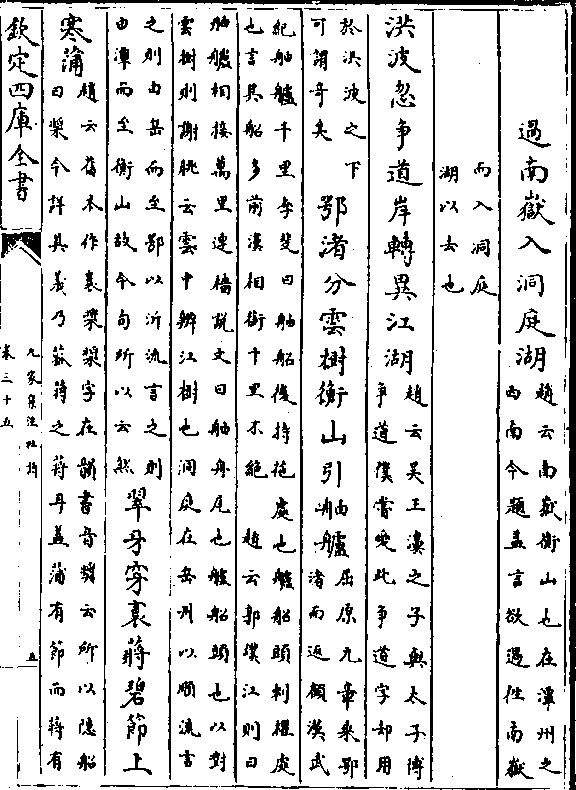 過南嶽入洞庭湖趙云南嶽衡山也在潭州之
西南今題蓋言欲過往南嶽
而入洞庭
湖以去也
洪波忽爭道岸轉異江湖趙云吳王濞之子與太子博
爭道僕嘗愛此爭道字却用
於洪波之下
可謂奇矣
鄂渚分雲樹衡山引舳艫屈原九章乘鄂
渚而返顧漢武
紀舳艫千里李斐曰舳船後持柂處也艫船頭刺櫂處
也言其船多前漢相銜千里不絕 趙云郭璞江則曰
舳艫相接萬里連檣説文曰舳舟尾也艫船頭也以對
雲樹則謝朓云雲中辨江樹也洞庭在岳州以順流言
之則由岳而至鄂以泝流言之則
由潭而至衡山故今句所以云然
翠牙穿裛蔣碧節上
寒蒲趙云舊本作裛槳槳字在韻書音蔣云所以隱船
曰槳今詳其義乃菰蔣之蔣耳蓋蒲有節而蔣有
欽定四庫全書
九家集注杜詩
卷三十五
五